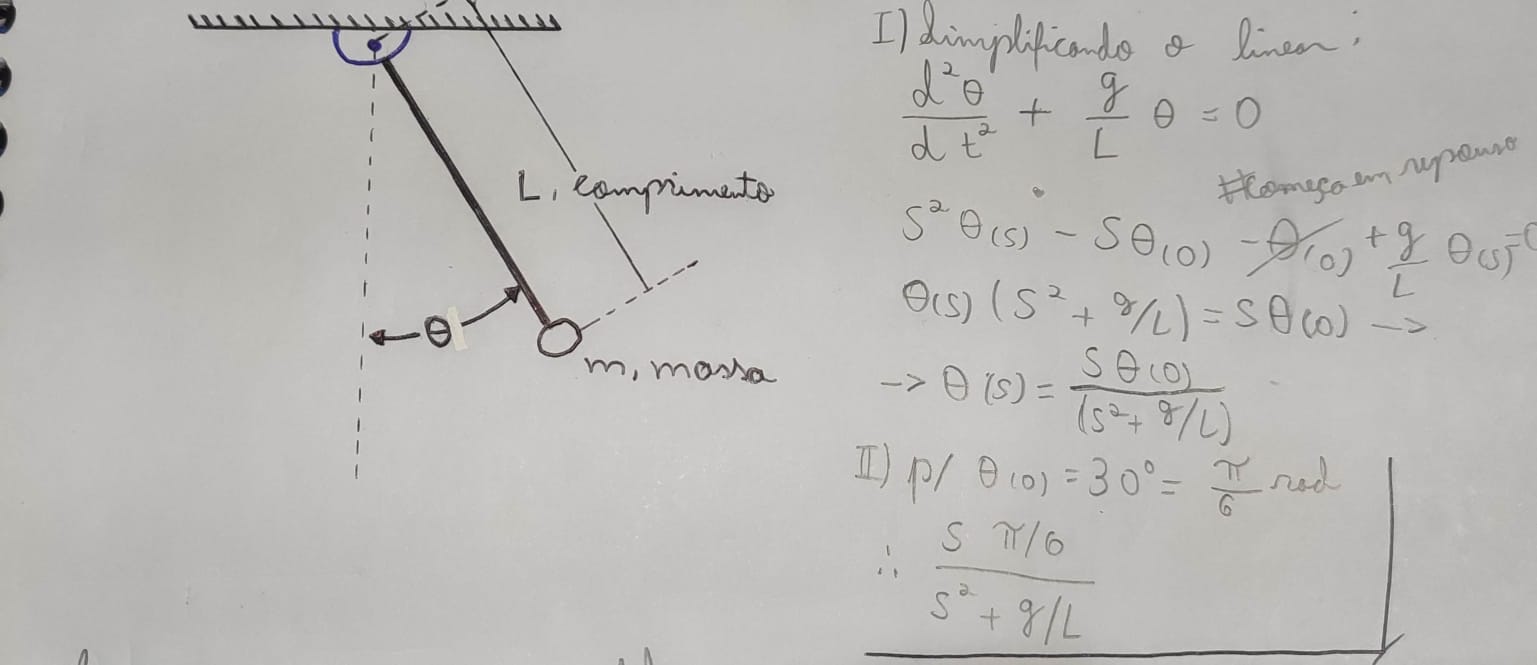 L, comprimento
θ
m, massa
I) Simplificando o linear:
d²θ/dt² + g/L θ = 0
#começa em repouso
S²θ(s) - Sθ(0) - θ̇(0) + g/L θ(s) = 0
θ(s) (S² + g/L) = Sθ(0) ->
-> θ(s) = Sθ(0)/(S² + g/L)
II) p/ θ(0) = 30° = π/6 rad
∴ S π/6 / S² + g/L